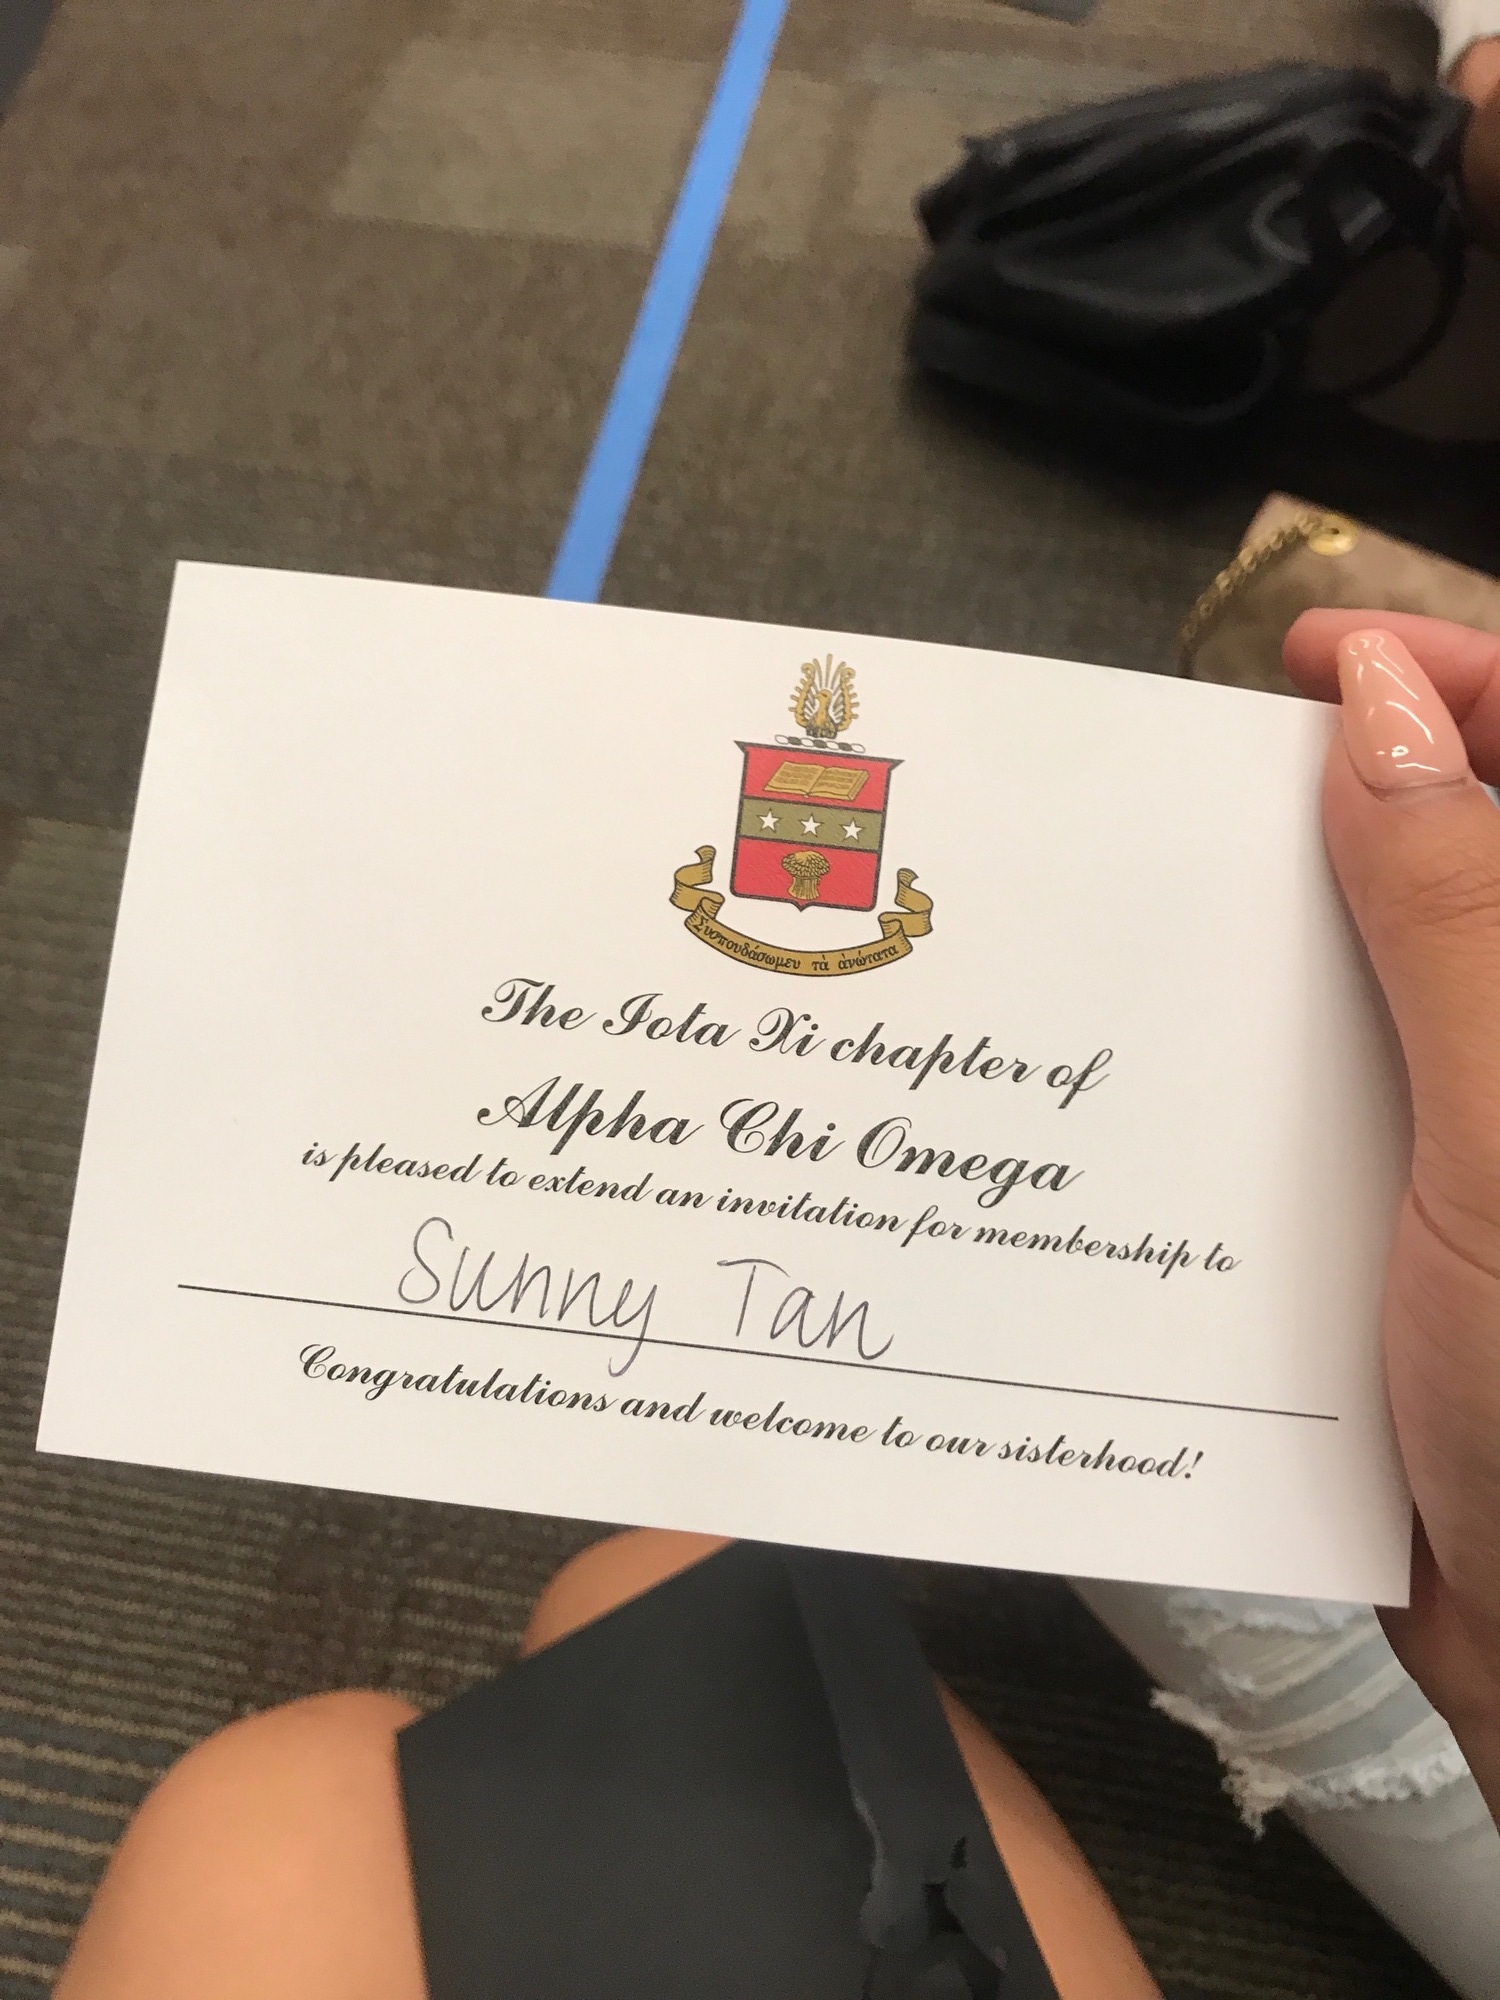 Συσπουδάσωμεν τὰ ἀνώτατα
The Iota Xi chapter of
Alpha Chi Omega
is pleased to extend an invitation for membership to
Sunny Tan
Congratulations and welcome to our sisterhood!